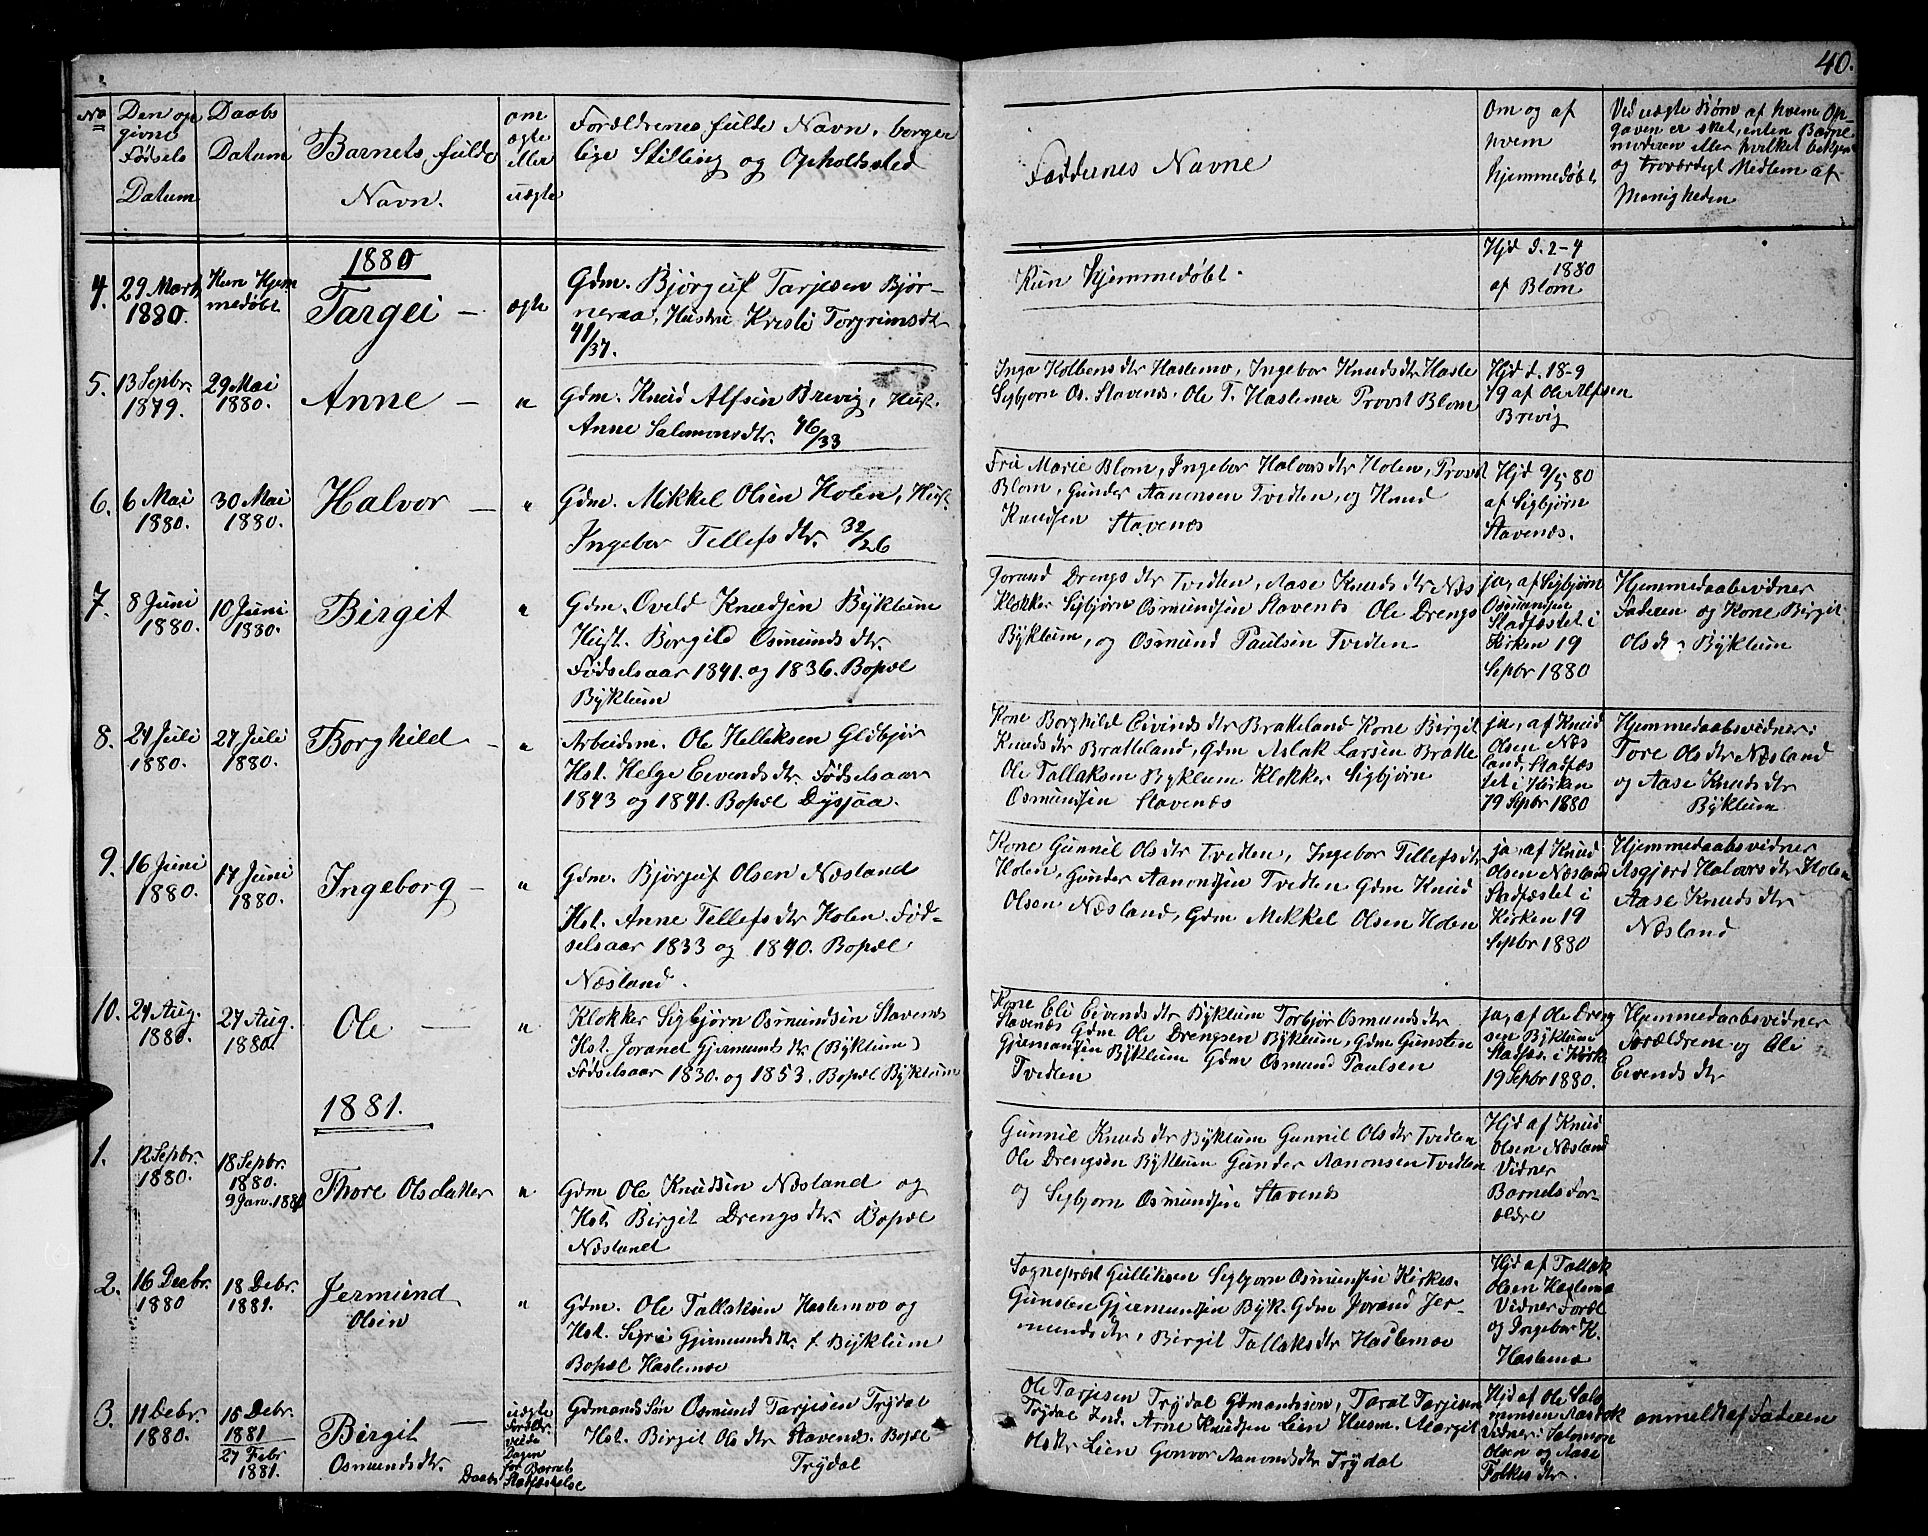 40.
No
Den op
givne
Fødsels
Datum
Daabs
Datum
Barnets fulde
Navn.
om
ægte
eller
uægte
Forældrenes fulde Navn, borger
lige Stilling og Opholdssted
Faddernes Navne
Om og af
hvem
hjemmedøbt
Ved uægte Børn af hvem Op-
gaven er sket, enten Barne
moderen eller hvilket bekjen
og troværdigt Medlem af
Menigheden
1880
4.
29 Marts
1880.
Kun Hjem
medøbt
Targei —
ægte
Gdm. Bjørguf Tarjesen Bjør-
neraa, Hustru Kristi Torgrimsdt
41/37.
Kun hjemmedøbt.
Hjd d. 2-4
1880
af Blom
5.
13 Septbr.
1879.
29 Mai
1880.
Anne —
"
Gdm. Knud Alfsen Brevig, Hust.
Anne Salomonsdtr. 46/33
Inga Kolbensdtr Haslemo, Ingebor Knudsdtr Hasle
Sigbjørn Os. Stavenes. Ole T. Haslemo Provst Blom
Hjd d. 18-9
79 af Ole Alfsen
Brevig
6.
6 Mai
1880.
30 Mai
1880.
Halvor —
"
Gdm. Mikkel Olsen Holen, Hust.
Ingebor Tellefsdtr. 32/26
Fru Marie Blom, Ingebor Halvorsdtr Holen, Provst
Blom, Gunder Aanonsen Tveitlen, og Knud
Knudsen Stavenæs
Hjd 9/5 80
af Sigbjørn
Stavenæs.
7.
8 Juni
1880.
10 Juni
1880.
Birgit
"
Gdm. Oveld Knudsen Býklum
Hust. Borgild Osmundsdtr.
Fødselsaar 1841. og 1836. Bopæl
Býklum
Jorand Drengsdtr Tveitlen, Aase Knudsdtr Næs
Klokker Sigbjørn Osmundsen Stavenæs Ole Drengs
Býklum, og Osmund Paulsen Tveitlen
ja, af Sigbjørn
Osmundsen
Stadfæstet i
Kirken 19
Septbr 1880
Hjemmedaabsvidner
Faderen og Kone Birgit
Olsdtr Býklum
8.
24 Juli
1880.
27 Juli
1880.
Borghild —
"
Arbeidsm. Ole Helliksen Glidbjør
Hst. Helge Eivendsdtr. Fødselsaar
1843 og 1841. Bopæl Dysjaa.
Kone Borghild Eivindsdtr Bratteland Kone Birgit
Knudsdtr Bratteland, Gdm Aslak Larsen Bratte
Ole Tallaksen Byklum Klokker Sigbjørn
Osmundsen Stavenæs
ja, af Knud
Olsen Næs
land, Stadfæs
tet i Kirken
19 Septbr 1880
Hjemmedaabsvidner:
Tore Olsdtr Næsland
og Aase Knudsdtr
Býklum
9.
16 Juni
1880.
17 Juni
1880.
Ingeborg —
"
Gdm. Bjørguf Olsen Næsland
Hst. Anne Tellefsdtr Holen. Fød-
selsaar 1833 og 1840. Bopæl
Næsland.
Kone Gunnil Olsdtr Tveitlen, Ingebor Tellefsdtr
Holen, Gunder Aanondsen Tveitlen Gdm Knud
Olsen Næsland, Gdm Mikkel Olsen Holen
ja, af Knud
Olsen Næsland
Stadfæstet i
Kirken 19
Septbr 1880
Hjemmedaabsvidner
Asgjerd Halvorsdtr Holen
Aase Knudsdtr
Næsland
10.
24 Aug.
1880.
27 Aug.
1880.
Ole —
"
Klokker Sigbjørn Osmundsen Stavenes
Hst. Jorand Gjermundsdtr (Býklum)
Fødselsaar 1830. og 1853. Bopæl Býklum
Kone Eli Eivendsdtr Býklum Torbjør Osmundsdtr
Stavenes Gdm Ole Drengsen Býklum, Gdm Gunsten
Gjermundsen Býklum Gdm Osmund Paulsen
Tveitlen
ja, af Ole Dreng
sen Býklum
Stadfæs. i Kirk
19 Septbr 1880.
Hjemmedaabsvidner
Forældrem og Eli
Eivendsdtr
1881.
1.
12 Septbr.
1880.
18 Septbr.
1880.
9 Janu. 1881
Thore Olsdatter
"
Gdm Ole Knudsen Næsland og
Hst. Birgit Drengsdtr. Bopæl
Næsland
Gunnil Knudsdtr Býklum Gunnil Olsdtr Tveitlen
Ole Drengsen Býklum Gunder Aanonsen Tveitlen
og Sigbjørn Osmundsen Stavenæs
Hjd af Knud
Olsen Næsland
Vidner
Barnets For-
ældre
2.
16 Decbr.
1880
18 Debr.
1881.
Jermund
Olsen
"
Gdm. Ole Tallaksen Haslemoo og
Hst. Sigri Gjermundsdtr. f. Býklum
Bopæl Haslemoe
Sognepræst Gulliksen Sigbjørn Osmunsen Kirkes.
Gunsten Gjermundsen Býk. Gdm Jorand Jer-
mundsdtr, Birgit Tallaksdtr Haslemoe
Hjd af Tallak
Olsen Haslemo
Vidner Foræl
og Ingebor K.
Haslemo
3.
11 Debr.
1880.
15 Debr.
1881
27 Febr
1881.
Birgit —
Osmundsdtr.
uægte
Forældr.
viede
Dagen
for Barnets
Daabs Stadfæstelse
Gdmands Søn Osmund Tarjesen Trýdal
Hst. Birgit Olsdtr Stavenes. Bopæl
Trýdal
Ole Tarjesen Trýdal Gdmandsøn, Tarat Tarjesen
Trýdal Ind. Arne Knudsen Lien Husm. Margit
Olsdtr Lien Gonvor Aanondsdtr Trýdal
Hjd af Ole Salo
monsen Aasbok
Vidner: Salomon
Olsen og Aase
Folkesdtr.
anmeldt af Faderen